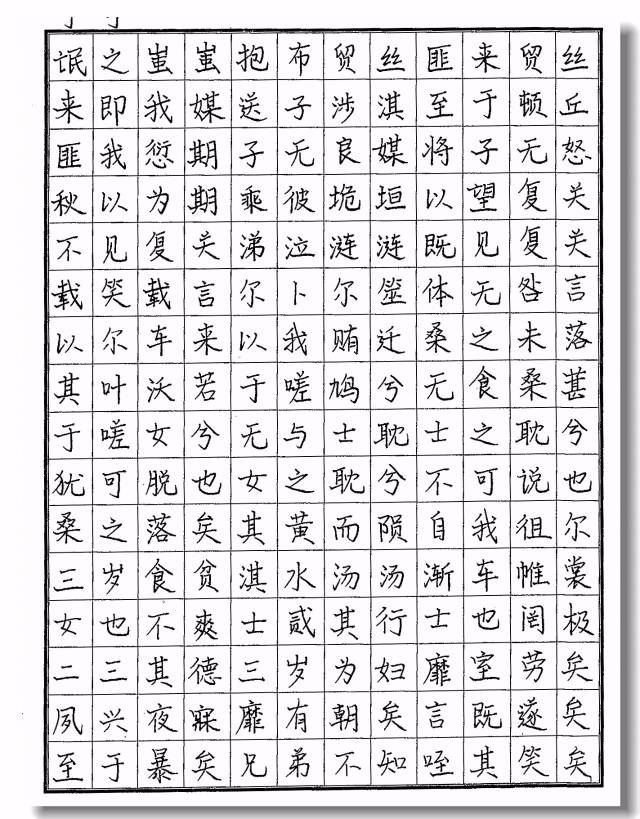 氓之蚩蚩抱布贸丝匪来贸丝
来即我媒送子涉淇至于顿丘
匪我愆期子无良媒将子无怒
秋以为期乘彼垝垣以望复关
不见复关涕泣涟涟既见复关
载笑载言尔卜尔筮体无咎言
以尔车来以我贿迁桑之未落
其叶沃若于嗟鸠兮无食桑葚
于嗟女兮无与士耽士之耽兮
犹可脱也女之耽兮不可说也
桑之落矣其黄而陨自我徂尔
三岁食贫淇水汤汤渐车帷裳
女也不爽士贰其行士也罔极
二三其德三岁为妇靡室劳矣
夙兴夜寐靡有朝矣言既遂矣
至于暴矣兄弟不知咥其笑矣